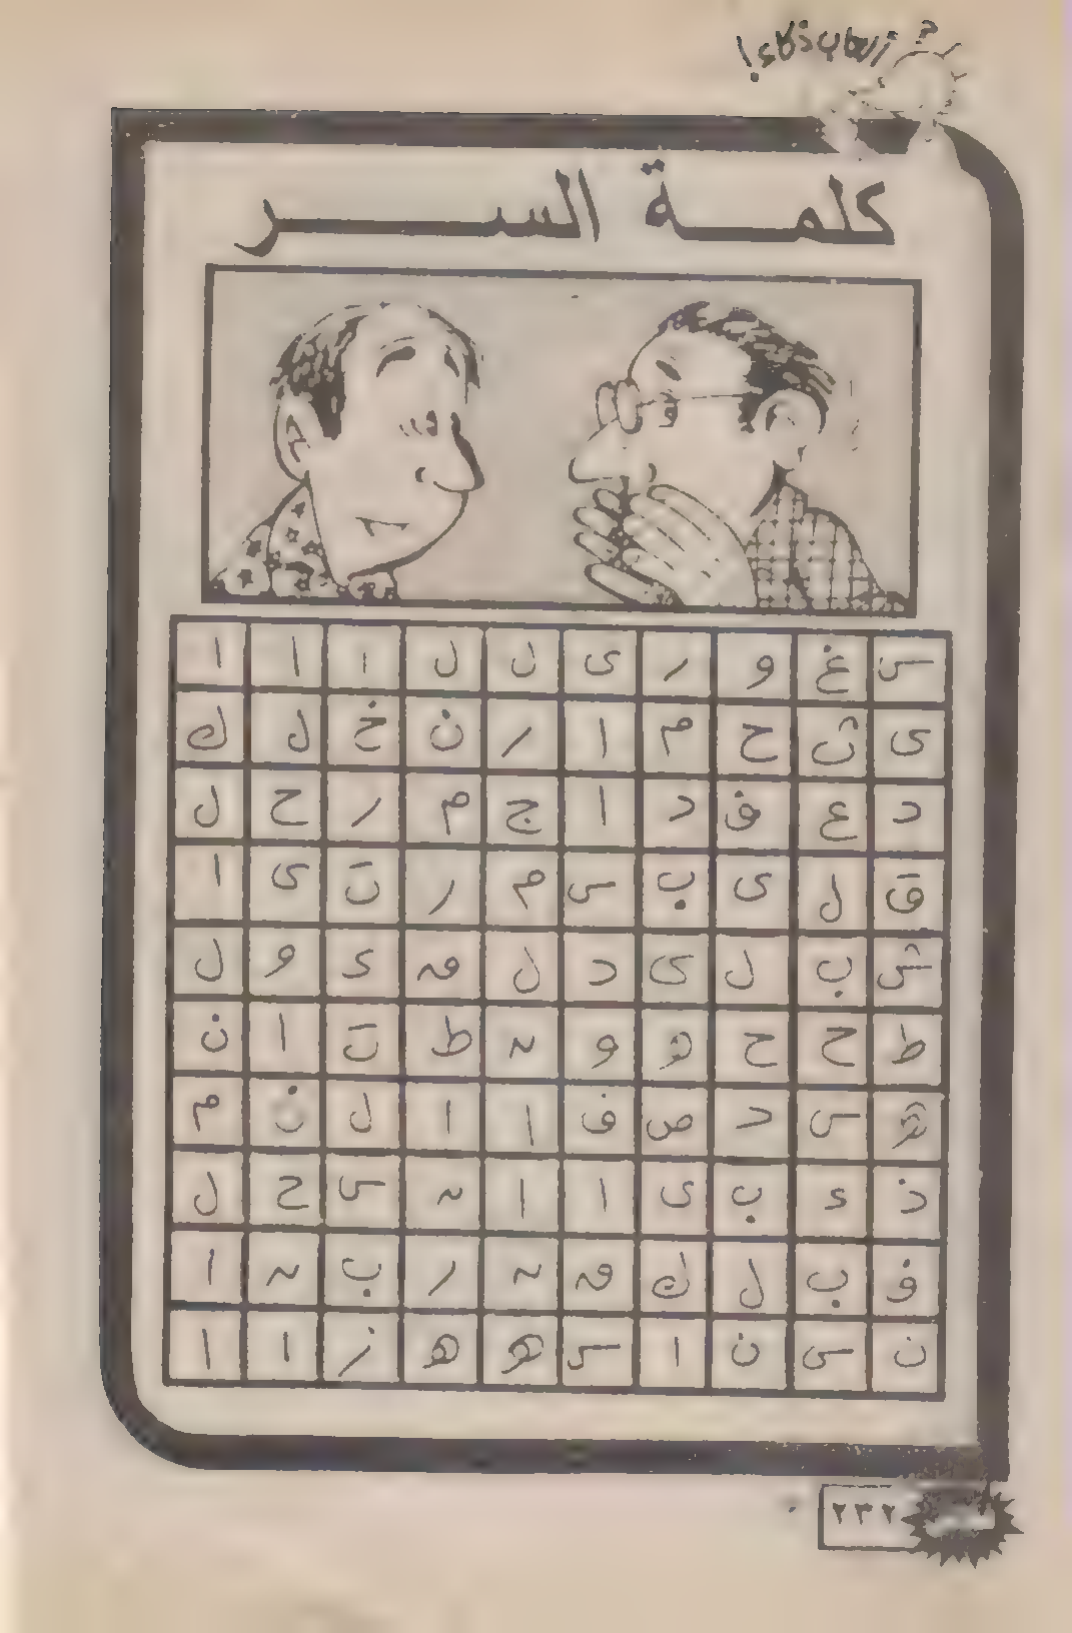 ألعاب ذكاء!
كلمة السر
س غ و ر ى ل ل ا ا ا
ى ت ح م ا ر ن خ ل ك
د ع ف د ا ج م ر ح ل
ق ل ى ب س م ر ت ى ا
ش ب ل ى د ل ة ء و ل
ط ح ح ة و ـه ط ت ا ن
ة س د ص ف ا ا ل ن م
ذ ء ب ى ا ا ـه س ح ل
ف ب ل ك ة ـه ر ب ـه ا
ن س ن ا س ه ه ز ا ا
٢٣٢